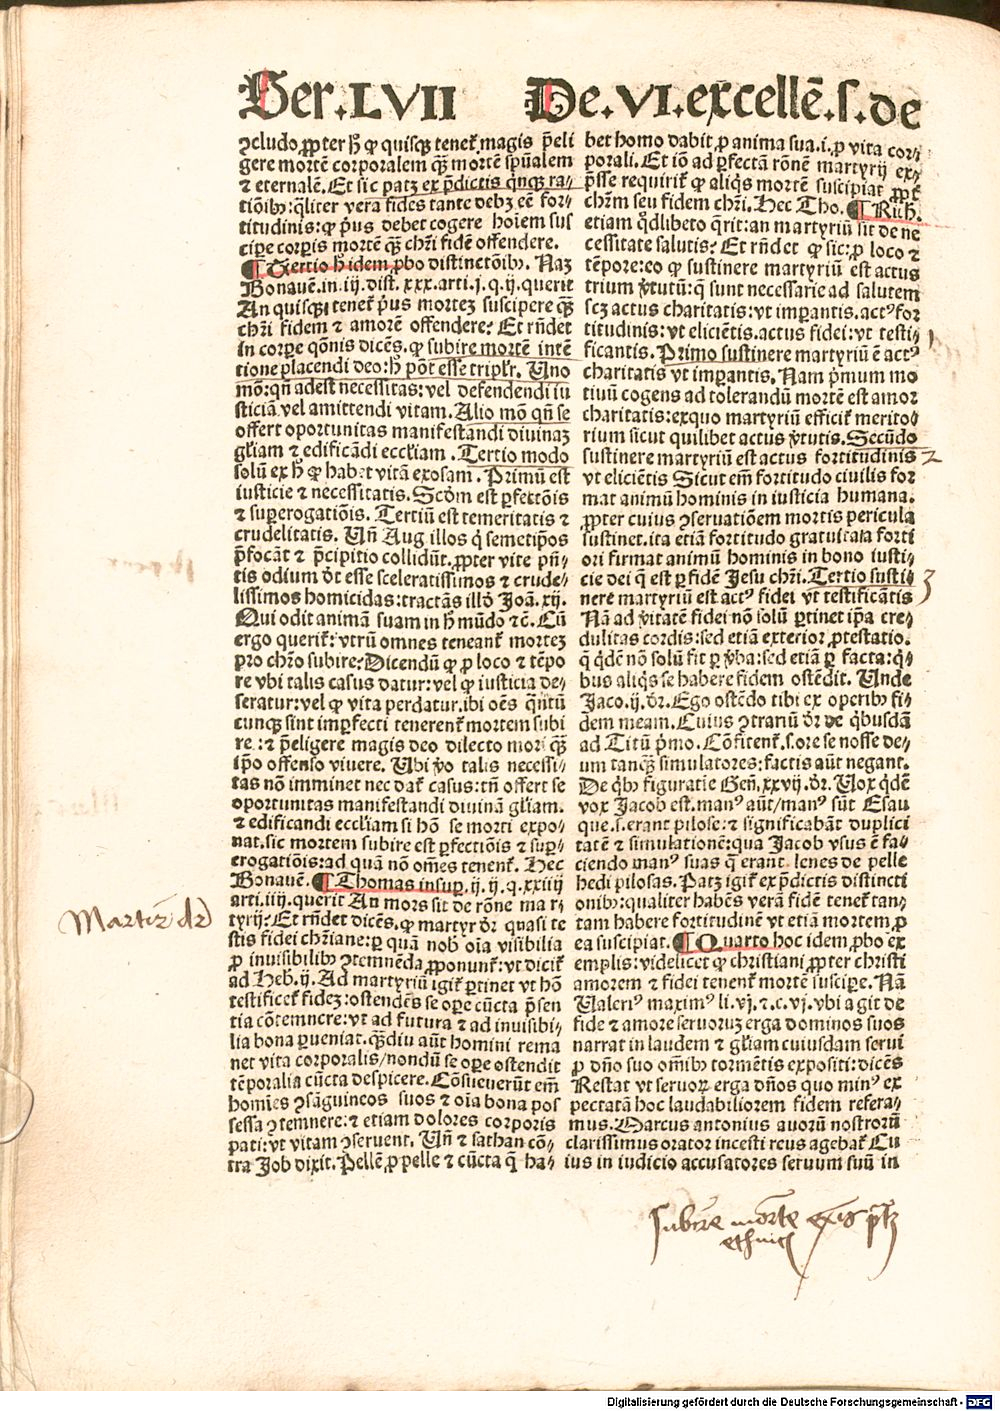 Ser. LVII De. VI. excellē. s. de
ꝯcludo, ꝓpter hͦ ꝙ quisqꝫ tenet᷑ magis p̄eli
gere mortē corporalem qꝫ̄ mortē spūalem
⁊ eternalē. Et sic patꝫ ex p̄dictis qͥnqꝫ ra-
tiōibꝫ: qͣliter vera fides tante debꝫ eē for-
titudinis: ꝙ pͥus debet cogere hoīem sus
ciꝑe corꝑis mortē qꝫ̄ chr̄i fidē offendere.
¶ Tertio hͦ idem ꝓbo distinctōibꝫ. Naꝫ
Bonauē. in. iij. dist. xxx. arti. j. q. ij. querit
An quisqꝫ tenet᷑ pͥus morteꝫ suscipere qꝫ̄
chr̄i fidem ⁊ amorē offendere? Et rn̄det
in corꝑe qōnis dicēs. ꝙ subire mortē intē
tione placendi deo: hͦ pōt esse tripl'r. Uno
mō: qn̄ adest necessitas: vel defendendi iu
sticiā vel amittendi vitam. Alio mō qn̄ se
offert oportunitas manifestandi diuinaꝫ
gl'iam ⁊ edificādi eccl'iam. Tertio modo
solū ex hͦ ꝙ habet vitā exosam. Primū est
iusticie ⁊ necessitatis. Scd̄m est ꝑfectōis
⁊ suꝑerogatiōis. Tertiū est temeritatis ⁊
crudelitatis. Un̄ Aug illos qͥ semetip̄os
p̄focāt ⁊ p̄cipitio collidūt. ꝓpter vite pn̄-
tis odium dt̄ esse sceleratissimos ⁊ crude-
lissimos homicidas: tractās illd̄ Joā. xij.
Qui odit animā suam in hͦ mūdo ⁊c̄. Cū
ergo querit᷑: vtrū omnes teneant᷑ morteꝫ
pro chr̄o subire? Dicendū ꝙ ꝓ loco ⁊ tēpo
re vbi talis casus datur: vel ꝙ iusticia de-
seratur: vel ꝙ vita perdatur. ibi oēs qͣntū
cunqꝫ sint imꝑfecti tenerent᷑ mortem subi
re: ⁊ p̄eligere magis deo dilecto mori qꝫ̄
ip̄o offenso viuere. Ubi vͦo talis necessi-
tas nō imminet nec dat᷑ casus: tn̄ offert se
oportunitas manifestandi diuinā gl'iam.
⁊ edificandi eccl'iam si hō se morti expo-
nat. sic mortem subire est ꝑfectiōis ⁊ suꝑ-
erogatiōis: ad quā nō om̄es tenent᷑. Hec
Bonauē. ¶ Thomas insuꝑ. ij. ij. q. xxiiij
arti. iiij. querit An mors sit de rōne mar
tyrij? Et rn̄det dicēs. ꝙ martyr dr̄ quasi te
stis fidei chr̄iane: ꝑ quā nob̄ oīa visibilia
ꝓ inuisibilibꝫ ꝯtemnēda ꝓponunt᷑: vt dicit᷑
ad Heb. ij. Ad martyriū igit᷑ ꝑtinet vt hō
testificet᷑ fideꝫ: ostendēs se oꝑe cūcta p̄sen
tia cōtemnere: vt ad futura ⁊ ad inuisibi-
lia bona ꝑueniat. qꝫ̄diu aūt homini rema
net vita corporalis/ nondū se oꝑe ostendit
tēporalia cūcta despicere. Cōsueuerūt em̄
homies ꝯsāguineos suos ⁊ oīa bona pos
sessa ꝯtemnere: ⁊ etiam dolores corporis
pati: vt vitam ꝯseruent. Un̄ ⁊ sathan cō-
tra Job dixit. Pellē, ꝓ pelle ⁊ cūcta q̄ ha-
bet homo dabit, ꝓ anima sua. i. ꝓ vita cor-
porali. Et iō ad ꝑfectā rōnē martyrij ex-
p̄sse requirit᷑ ꝙ aliqͥs mortē suscipiat ꝓpt᷑
chr̄m seu fidem chr̄i. Hec Tho. ¶ Rich.
etiam qͦdlibeto qͣrit: an martyriū sit de ne
cessitate salutis? Et rn̄det ꝙ sic: ꝓ loco ⁊
tēpore: eo ꝙ sustinere martyriū est actus
trium v̓tutū: q̄ sunt necessarie ad salutem
scꝫ actus charitatis: vt imꝑantis. actꝰ for
titudinis: vt eliciētis. actus fidei: vt testi-
ficantis. Primo sustinere martyriū ē actꝰ
charitatis vt imꝑantis. Nam pͥmum mo
tiuū cogens ad tolerandū mortē est amor
charitatis: ex quo martyriū efficit᷑ merito-
rium sicut quilibet actus v̓tutis. Secūdo
sustinere martyriū est actus fortitudinis
vt eliciētis Sicut em̄ fortitudo ciuilis for
mat animū hominis in iusticia humana.
ꝓpter cuius ꝯseruatiōem mortis pericula
sustinet. ita etiā fortitudo gratuitaia forti
ori firmat animū hominis in bono iusti-
cie dei q̄ est ꝑ fidē Jesu chr̄i. Tertio susti-
nere martyriū est actꝰ fidei vt testificātis
Nā ad v̓itatē fidei nō solū ꝑtinet ip̄a cre-
dulitas cordis: sed etiā exterior, ꝓtestatio.
q̄ qͥdē nō solū fit ꝑ v̓ba: sed etiā ꝑ facta: qͥ-
bus aliqͥs se habere fidem ostēdit. Unde
Jaco. ij. dr̄. Ego ostēdo tibi ex oꝑeribꝰ fi-
dem meam. Cuius ꝯtrariū dr̄ de qͥbusdā
ad Titū pͥmo. Cōfitent᷑. s. ore se nosse de-
um tanqꝫ̄ simulatores: factis aūt negant.
De qͥbꝫ figuratie Gen̄. xxvij. dr̄. Uox qͥdē
vox Jacob est. manꝰ aūt/ manꝰ sūt Esau
que. s. erant pilose: ⁊ significabāt duplici
tatē ⁊ simulationē: qua Jacob vsus ē fa-
ciendo manꝰ suas q̄ erant lenes de pelle
hedi pilosas. Patꝫ igit᷑ ex p̄dictis distincti
onibꝫ: qualiter habēs verā fidē tenet᷑ tan-
tam habere fortitudinē vt etiā mortem, ꝓ
ea suscipiat. ¶ Quarto hoc idem, ꝓbo ex
emplis: videlicet ꝙ christiani ꝓpter christi
amorem ⁊ fidei tenent᷑ mortē susciꝑe. Nā
Ualeriꝰ maximꝰ li. vj. ⁊. c. vj. vbi agit de
fide ⁊ amore seruoruꝫ erga dominos suos
narrat in laudem ⁊ gl'iam cuiusdam serui
ꝓ dn̄o suo om̄ibꝫ tormētis expositi: dicēs
Restat vt seruorꝝ erga dn̄os quo minꝰ ex
pectatam hoc laudabiliorem fidem refera-
mus. Marcus antonius auorū nostrorū
clarissimus orator incesti reus agebat᷑ Cu
ius in iudicio accusatores seruum suū in
1
2
3
Martir dr̄
subire mortē
ethnici
Digitalisierung gefördert durch die Deutsche Forschungsgemeinschaft - DFG